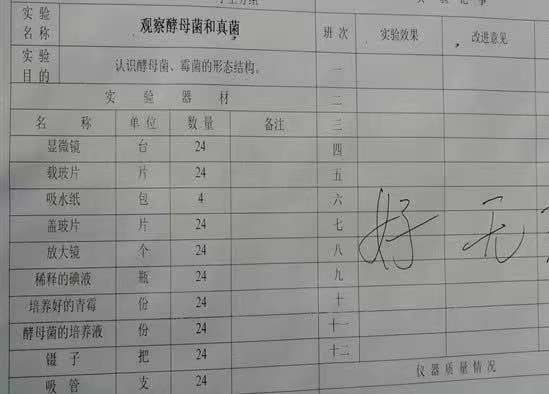 实验名称 观察酵母菌和真菌 班次 实验效果 改进意见
实验目的 认识酵母菌、霉菌的形态结构。 一
实验器材 二
名称 单位 数量 备注 三
显微镜 台 24 四
载玻片 片 24 五
吸水纸 包 4 六
盖玻片 片 24 七 好 无
放大镜 个 24 八
稀释的碘液 瓶 24 九
培养好的青霉 份 24 十
酵母菌的培养液 份 24 十一
镊子 把 24 十二
吸管 支 24 仪器质量情况